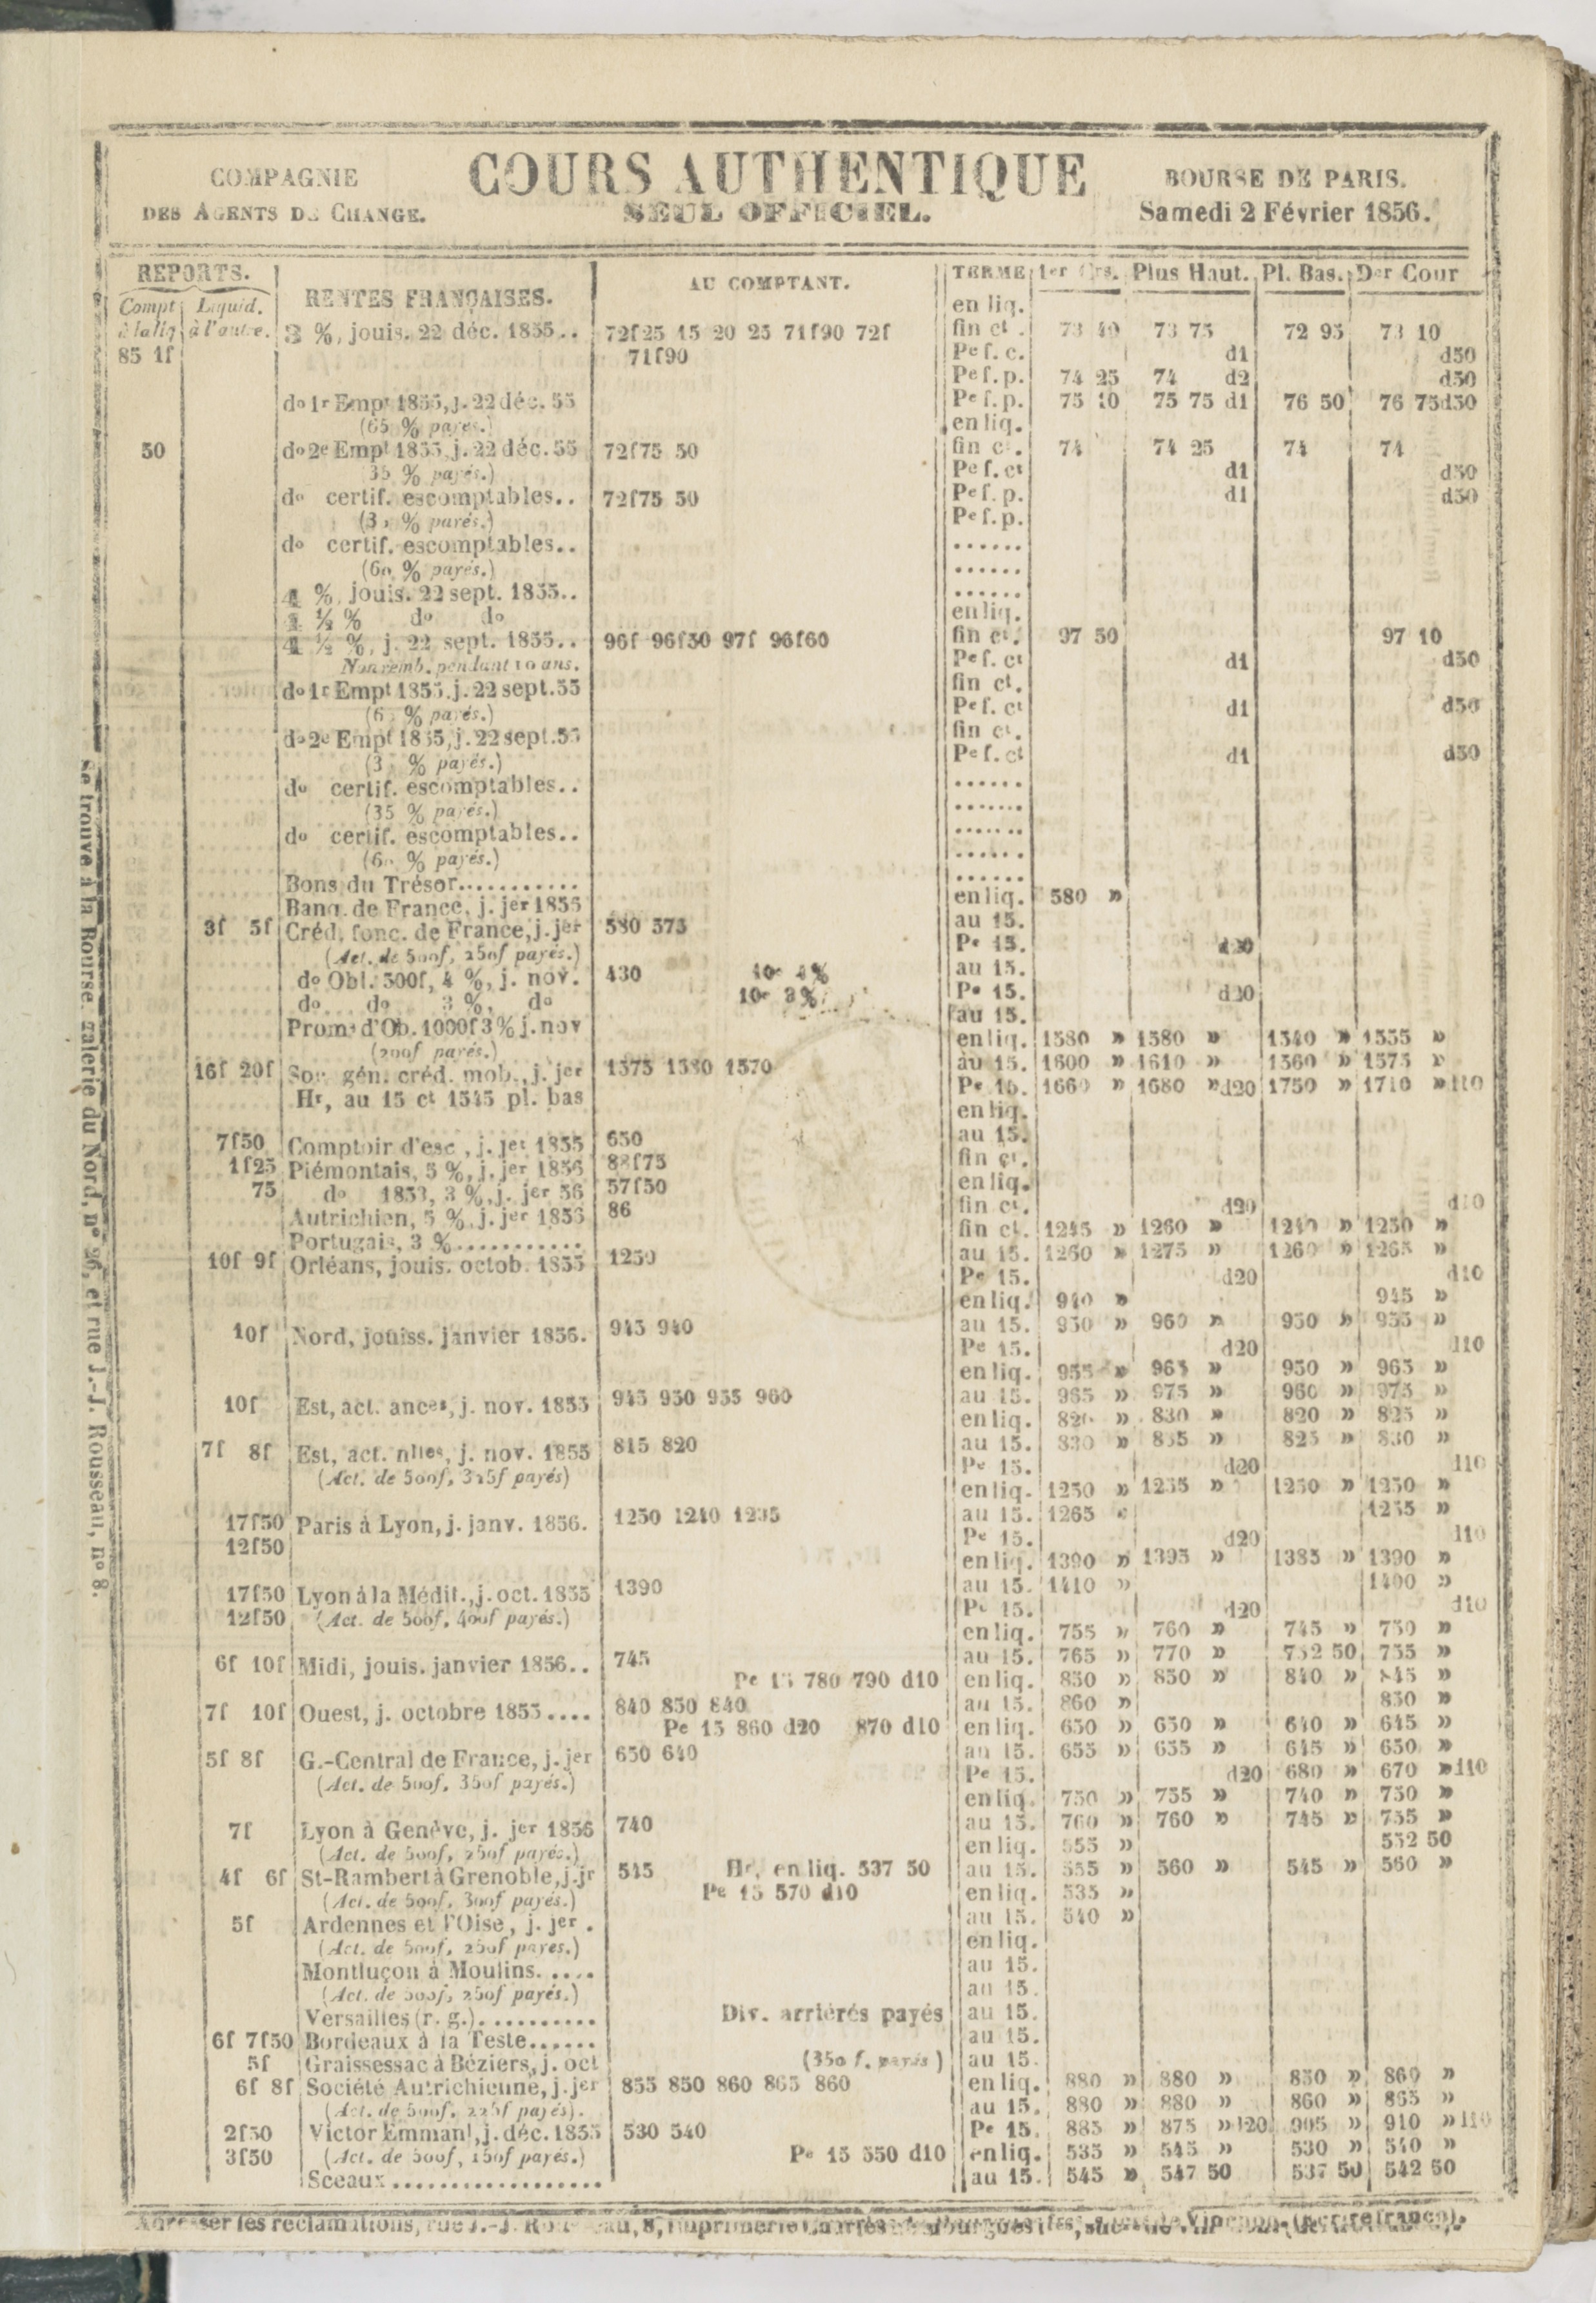 COMPAGNIE
DES AGENTS DE CHANGE.
COURS AUTHENTIQUE
SEUL OFFICIEL.
BOURSE DE PARIS.
Samedi 2 Février 1856.
REPORTS. RENTES FRANÇAISES. AU COMPTANT. TERME 1er Crs. Plus Haut. Pl. Bas. Der Cour
Compt à la liq Liquid. à l'autre.
en liq.
3 %, jouis. 22 déc. 1855.. 72f25 15 20 25 71f90 72f fin ct. 73 40 73 75 72 95 73 10
85 1f 71f90 Pe f. c. d1 d50
Pe f. p. 74 25 74 d2 d50
do 1r Empt 1855, j. 22 déc. 55 Pe f. p. 75 10 75 75 d1 76 50 76 75 d50
(65 % payés.) en liq.
50 do 2e Empt 1855, j. 22 déc. 55 72f75 50 fin ct. 74 74 25 74 74
(35 % payés.) Pe f. ct d1 d50
do certif. escomptables.. 72f75 50 Pe f. p. d1 d50
(35 % payés.) Pe f. p.
do certif. escomptables.. ......
(60 % payés.) ......
4 %, jouis. 22 sept. 1855.. ......
4 ½ % do do en liq.
4 ½ %, j. 22 sept. 1855.. 96f 96f50 97f 96f60 fin ct. 97 50 97 10
Non remb. pendant 10 ans. Pe f. ct d1 d50
do 1r Empt 1855, j. 22 sept. 55 fin ct.
(% payés.) Pe f. ct d1 d50
do 2e Empt 1855, j. 22 sept. 55 fin ct.
(% payés.) Pe f. ct d1 d50
do certif. escomptables.. ......
(35 % payés.) ......
do certif. escomptables.. ......
(60 % payés.) ......
Bons du Trésor........... ......
Banq. de France, j. jer 1855 en liq. 580 »
3f 5f Créd. fonc. de France, j. jer 580 575 au 15.
(Act. de 500f, 250f payés.) Pe 15. d20
do Obl. 500f, 4 %, j. nov. 430 10e 4% au 15.
do do 3 %, do 10e 3% Pe 15. d20
Proms d'Ob. 1000f 3% j. nov au 15.
(200f payés.) en liq. 1580 » 1580 » 1540 » 1555 »
16f 20f Soc. gén. créd. mob., j. jer 1575 1580 1570 au 15. 1600 » 1610 » 1560 » 1575 »
Hr, au 15 ct 1545 pl. bas Pe 15. 1660 » 1680 » d20 1750 » 1710 » d10
en liq.
7f50 Comptoir d'esc., j. jet 1855 650 au 15.
1f25 Piémontais, 5 %, j. jer 1856 88f75 fin ct.
75 do 1853, 3 %, j. jer 56 57f50 en liq.
Autrichien, 5 %, j. jer 1856 86 fin ct. d20 d10
Portugais, 3 %........... fin ct. 1245 » 1260 » 1240 » 1250 »
10f 9f Orléans, jouis. octob. 1855 1250 au 15. 1260 » 1275 » 1260 » 1265 »
Pe 15. d20 d10
en liq. 940 » 945 »
10f Nord, jouiss. janvier 1856. 945 940 au 15. 950 » 960 » 950 » 955 »
Pe 15. d20 d10
en liq. 955 » 965 » 950 » 965 »
10f Est, act. ances, j. nov. 1855 945 950 955 960 au 15. 965 » 975 » 960 » 975 »
en liq. 820 » 830 » 820 » 825 »
7f 8f Est, act. nlles, j. nov. 1855 815 820 au 15. 830 » 835 » 825 » 830 »
(Act. de 500f, 325f payés) Pe 15. d20 d10
en liq. 1250 » 1255 » 1250 » 1250 »
17f50 Paris à Lyon, j. janv. 1856. 1250 1240 1235 au 15. 1265 1255 »
12f50 Pe 15. d20 d10
en liq. 1390 » 1395 » 1385 » 1390 »
17f50 Lyon à la Médit., j. oct. 1855 1390 au 15. 1410 » 1400 »
12f50 (Act. de 500f, 400f payés.) Pe 15. d20 d10
en liq. 755 » 760 » 745 » 750 »
6f 10f Midi, jouis. janvier 1856.. 745 au 15. 765 » 770 » 752 50 755 »
Pe 15 780 790 d10 en liq. 850 » 850 » 840 » 845 »
7f 10f Ouest, j. octobre 1855.... 840 850 840 au 15. 860 » 850 »
Pe 15 860 d20 870 d10 en liq. 650 » 650 » 640 » 645 »
5f 8f G.-Central de France, j. jer 650 640 au 15. 655 » 655 » 645 » 650 »
(Act. de 500f, 350f payés.) Pe 15. d20 680 » 670 » d10
en liq. 750 » 755 » 740 » 750 »
7f Lyon à Genève, j. jer 1856 740 au 15. 760 » 760 » 745 » 755 »
(Act. de 500f, 250f payés.) en liq. 555 » 552 50
4f 6f St-Rambert à Grenoble, j. jr 545 Hr, en liq. 537 50 au 15. 555 » 560 » 545 » 560 »
(Act. de 500f, 300f payés.) Pe 15 570 d10 en liq. 535 »
5f Ardennes et l'Oise, j. jer. au 15. 540 »
(Act. de 500f, 250f payés.) en liq.
Montluçon à Moulins..... au 15.
(Act. de 500f, 250f payés.) au 15.
Versailles (r. g.).......... Div. arriérés payés au 15.
6f 7f50 Bordeaux à la Teste...... au 15.
5f Graissessac à Béziers, j. oct (350 f. payés) au 15.
6f 8f Société Autrichienne, j. jer 855 850 860 865 860 en liq. 880 » 880 » 850 » 860 »
(Act. de 500f, 225f payés). au 15. 880 » 880 » 860 » 865 »
2f50 Victor Emmanl, j. déc. 1855 530 540 Pe 15. 885 » 875 » d20 905 » 910 » d10
3f50 (Act. de 500f, 150f payés.) Pe 15 550 d10 en liq. 535 » 545 » 530 » 540 »
Sceaux.................. au 15. 545 » 547 50 537 50 542 50
Adresser les réclamations, rue J.-J. Rousseau, 8, Imprimerie
Se trouve à la Bourse, galerie du Nord, n° 26, et rue J.-J. Rousseau, n° 8.